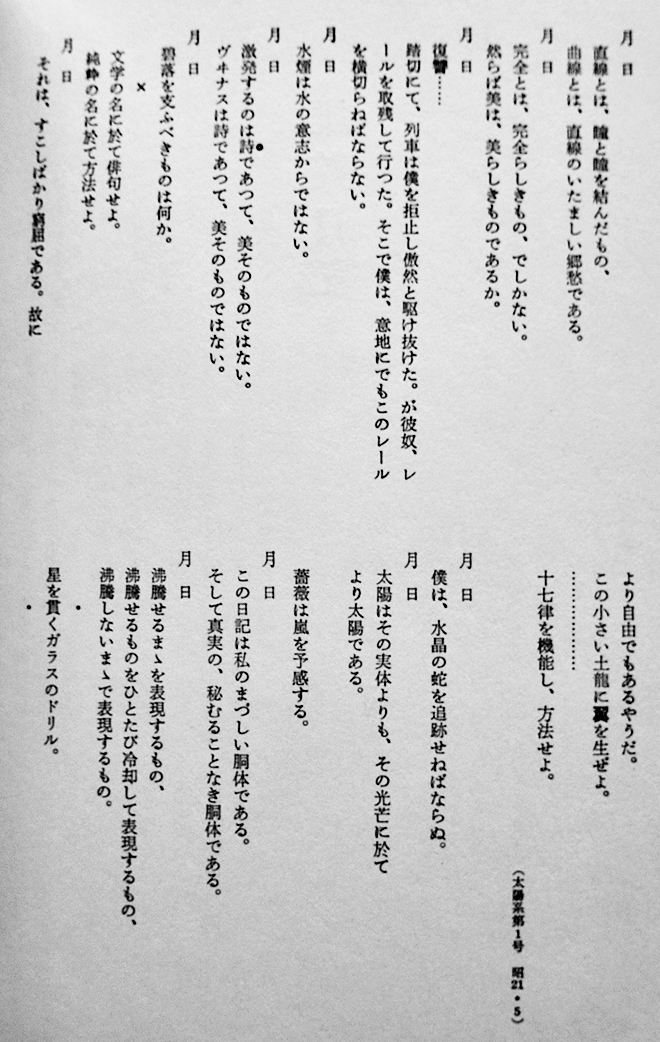 月　日
直線とは、瞳と瞳を結んだもの、
曲線とは、直線のいたましい郷愁である。
月　日
完全とは、完全らしきもの、でしかない。
然らば美は、美らしきものであるか。
月　日
復讐……
踏切にて、列車は僕を拒止し傲然と駆け抜けた。が彼奴、レ
ールを取残して行つた。そこで僕は、意地にでもこのレール
を横切らねばならない。
月　日
水煙は水の意志からではない。
月　日
激発するのは詩であつて、美そのものではない。
ヴヰナスは詩であつて、美そのものではない。
月　日
碧落を支ふべきものは何か。
×
文学の名に於て俳句せよ。
純粋の名に於て方法せよ。
月　日
それは、すこしばかり窮屈である。故に
より自由でもあるやうだ。
この小さい土龍に翼を生ぜよ。
………………
十七律を機能し、方法せよ。
（太陽系第1号　昭21・5）
月　日
僕は、水晶の蛇を追跡せねばならぬ。
月　日
太陽はその実体よりも、その光芒に於て
より太陽である。
薔薇は嵐を予感する。
月　日
この日記は私のまづしい胴体である。
そして真実の、秘むることなき胴体である。
月　日
沸騰せるまゝを表現するもの、
沸騰せるものをひとたび冷却して表現するもの、
沸騰しないまゝで表現するもの。
・
星を貫くガラスのドリル。
・